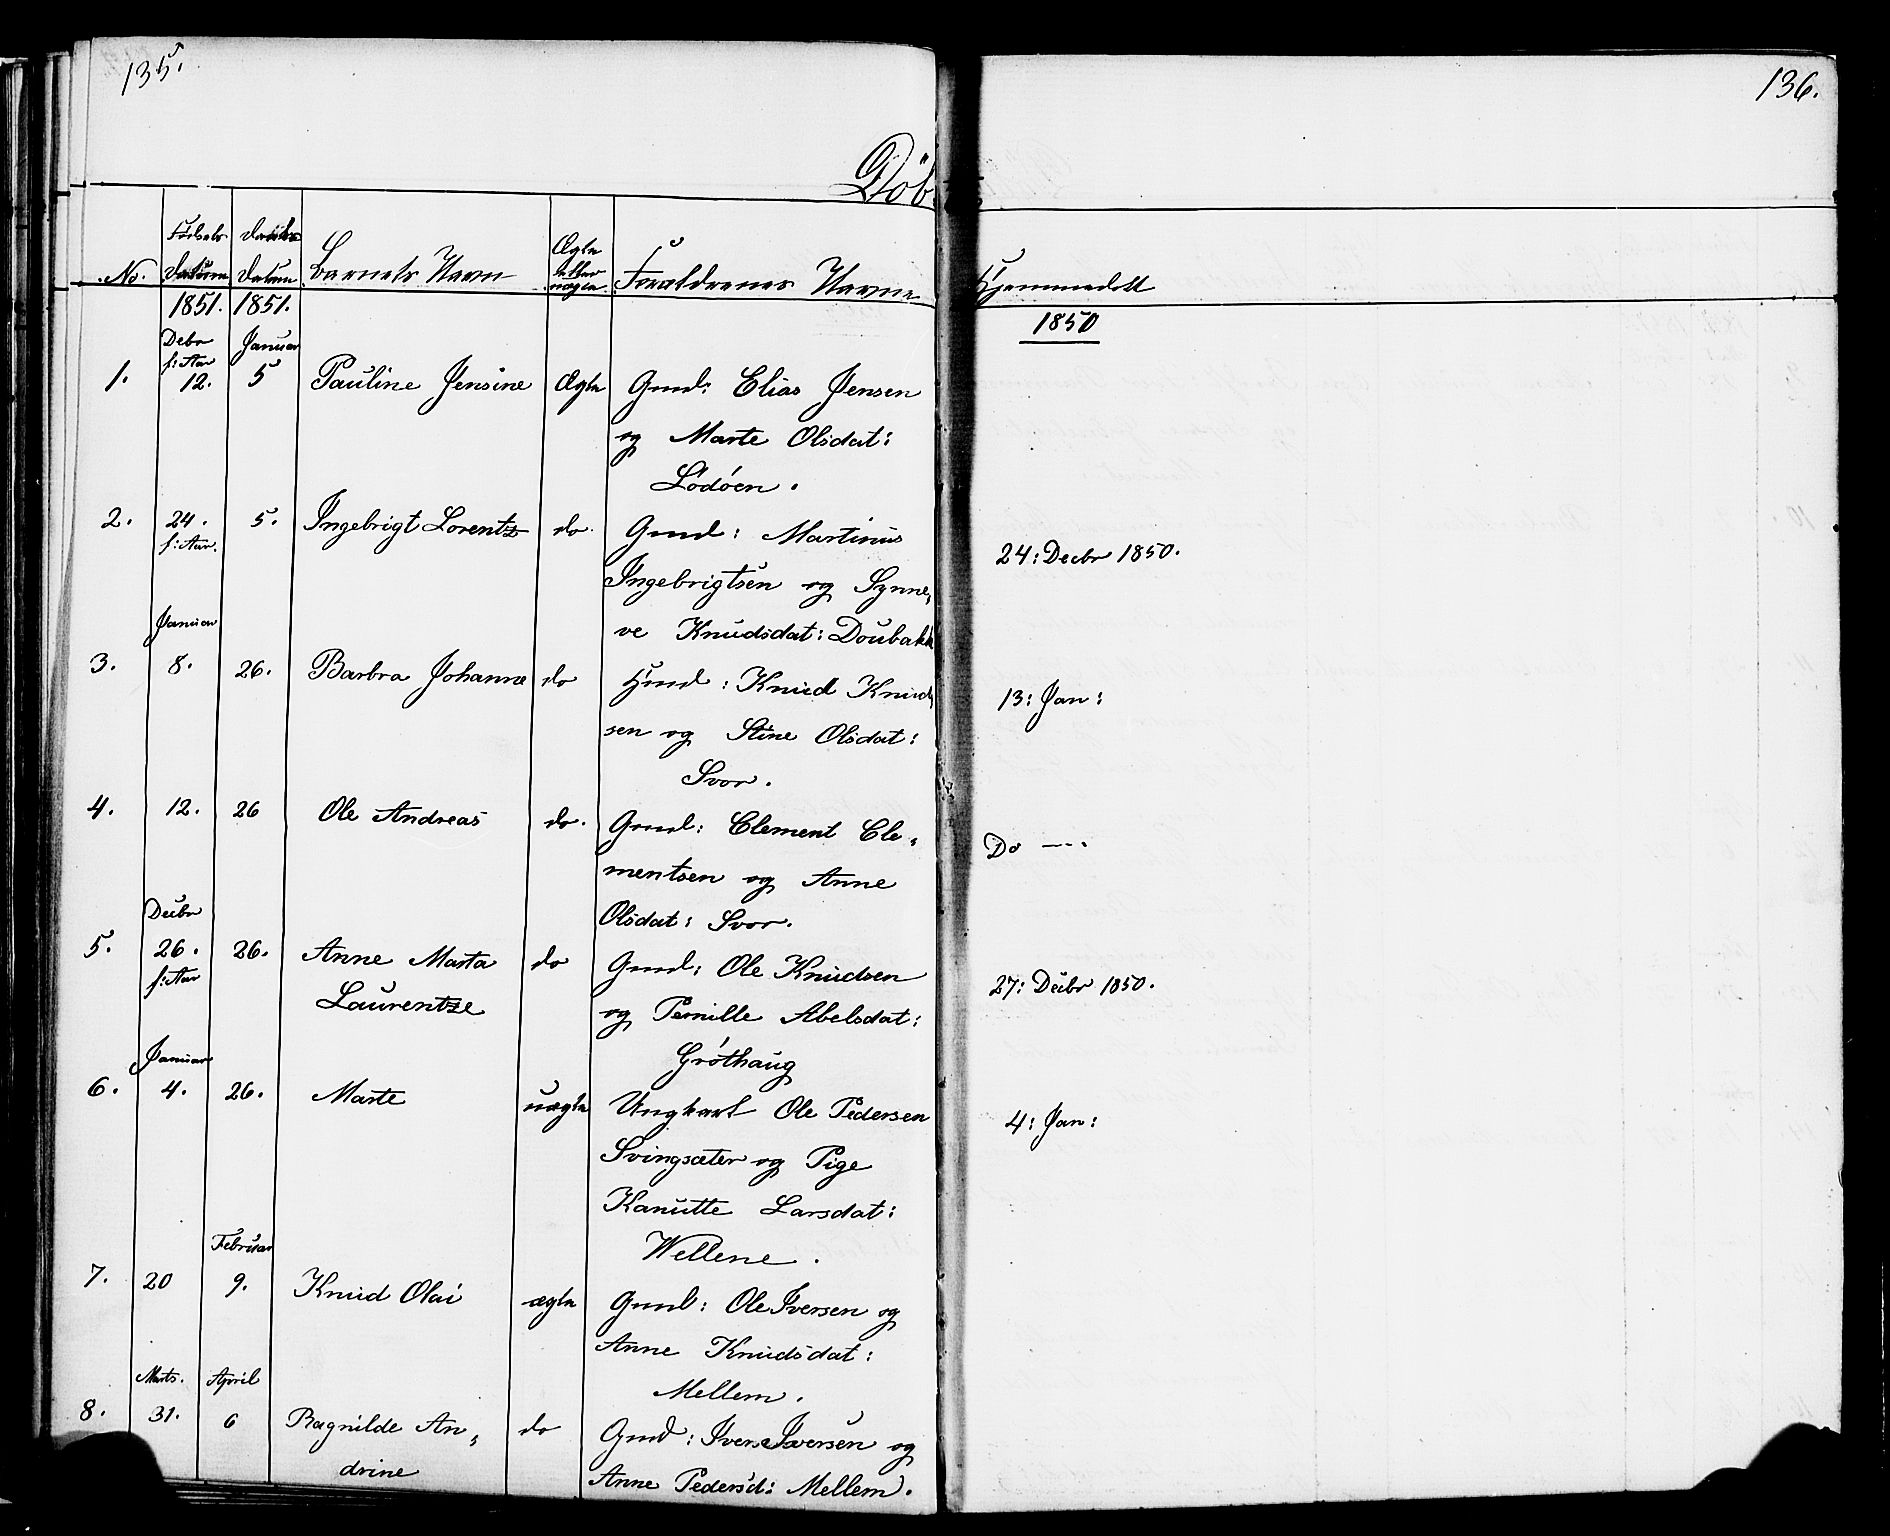 135.
Döb
No.
Fødsels
datum
Daabs
datum
Barnets Navn
Ægte
eller
uægte
Forældrenes Navne
1851. 1851.
Debr
f: Aar
Januar
1. 12. 5 Pauline Jensine Ægte Gmd: Elias Jensen
og Marte Olsdat:
Lödöen.
2. 24. 5. Ingebrigt Lorentz do. Gmd: Martinus
f: Aar.
Ingebrigtsen og Synne,
ve Knudsdat: Doubakk
Januar
3. 8. 26. Barbra Johanne do Hmd: Knud Knud,
sen og Stine Olsdat:
Svor.
4. 12. 26 Ole Andreas do. Gmd: Clement Cle,
mentsen og Anne
Olsdat: Svor.
Decbr
5. 26. 26. Anne Marta do Gmd: Ole Knudsen
f: Aar
Laurentze og Pernille Abelsdat:
Gröthaug
Januar
6. 4. 26. Marte uægte Ungkarl Ole Pedersen
Svingsæter og Pige
Kanutte Larsdat:
Wellene.
Februar
7. 20 9. Knud Olai ægte Gmd: Ole Iversen og
Anne Knudsdat:
Mellem.
Marts. April
8. 31. 6 Ragnilde An, do Gmd: Iver Iversen og
drine Anne Pedersd: Mellem.
136.
Hjemmedöbt
1850
24: Decbr 1850.
13: Jan:
Do ---
27: Decbr 1850.
4: Jan: